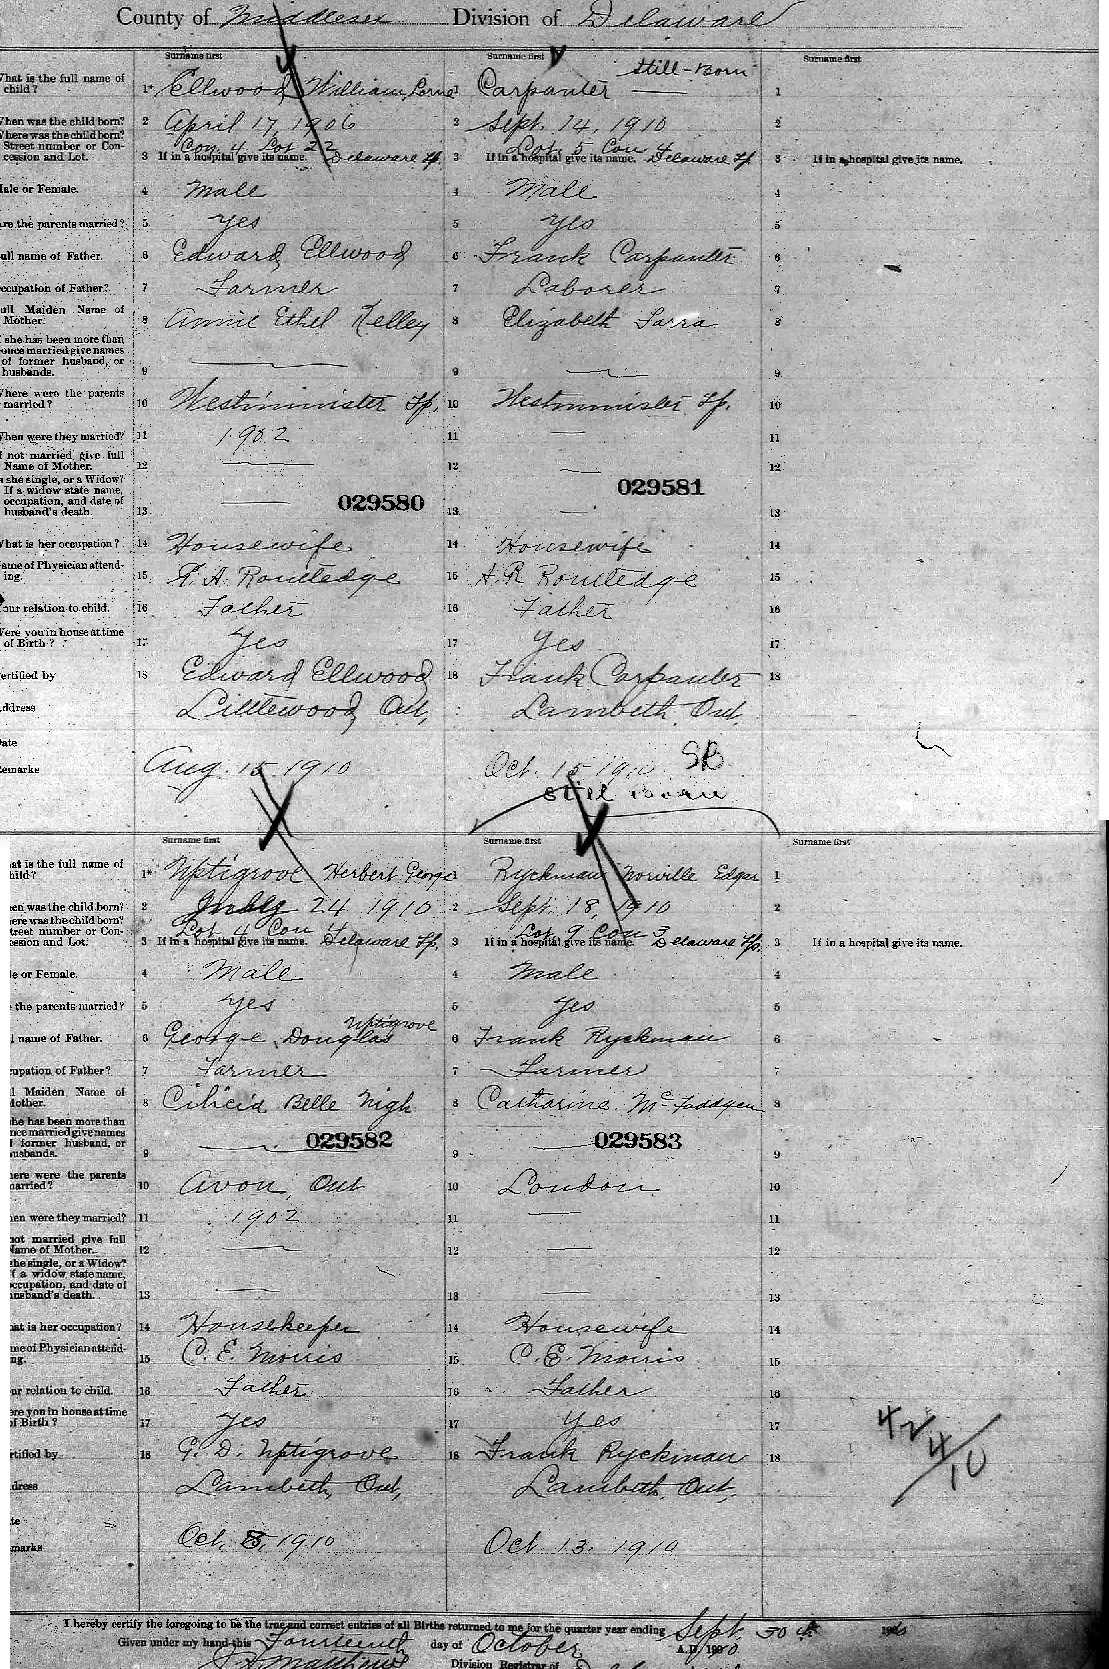 County of Middlesex Division of Delaware
Surname first Surname first Surname first
Still-Born
What is the full name of child? 1 Ellwood, William, Lorne 1 Carpanter — 1
When was the child born? 2 April 17, 1906 2 Sept. 14, 1910 2
Where was the child born? Street number or Concession and Lot. Con 4 Lot 22 Lot 5 Con 4
3 If in a hospital give its name. Delaware Tp. 3 If in a hospital give its name. Delaware Tp 3 If in a hospital give its name.
Male or Female. 4 Male 4 Male 4
Are the parents married? 5 Yes 5 Yes 5
Full name of Father. 6 Edward Ellwood 6 Frank Carpanter 6
Occupation of Father? 7 Farmer 7 Laborer 7
Full Maiden Name of Mother. 8 Annie Ethel Kelley 8 Elizabeth Sarra 8
If she has been more than once married give names of former husband, or husbands. 9 — 9 — 9
Where were the parents married? 10 Westminister Tp. 10 Westminister Tp. 10
When were they married? 11 1902 11 — 11
If not married give full Name of Mother. 12 — 12 — 12
Is she single, or a Widow? If a widow state name, occupation, and date of husband's death. 13 — 029580 13 — 029581 13
What is her occupation? 14 Housewife 14 Housewife 14
Name of Physician attending. 15 A. Routledge 15 A. R Routledge 15
Your relation to child. 16 Father 16 Father 16
Were you in house at time of Birth? 17 Yes 17 Yes 17
Certified by 18 Edward Ellwood 18 Frank Carpanter 18
Address Littlewood, Ont, Lambeth, Ont.
Date Aug. 15 1910 Oct. 15 1910 SB
Remarks Still Born
Surname first Surname first Surname first
What is the full name of child? 1 Uptigrove Herbert George 1 Ryckman Norville Edgar 1
When was the child born? 2 July 24 1910 2 Sept. 18, 1910 2
Where was the child born? Street number or Concession and Lot. Lot 4 Con 4 Lot 9 Con 3
3 If in a hospital give its name. Delaware Tp. 3 If in a hospital give its name. Delaware Tp. 3 If in a hospital give its name.
Male or Female. 4 Male 4 Male 4
Are the parents married? 5 Yes 5 Yes 5
Uptigrove
Full name of Father. 6 George Douglas 6 Frank Ryckman 6
Occupation of Father? 7 Farmer 7 Farmer 7
Full Maiden Name of Mother. 8 Belle Nigh 8 Catharine McFadgen 8
If she has been more than once married give names of former husband, or husbands. 9 — 029582 9 — 029583 9
Where were the parents married? 10 Avon, Ont 10 London 10
When were they married? 11 1902 11 — 11
If not married give full Name of Mother. 12 — 12 — 12
Is she single, or a Widow? If a widow state name, occupation, and date of husband's death. 13 — 13 — 13
What is her occupation? 14 Housekeeper 14 Housewife 14
Name of Physician attending. 15 C. E. Morris 15 C. E. Morris 15
Your relation to child. 16 Father 16 Father 16
Were you in house at time of Birth? 17 Yes 17 Yes 17
42/4/10
Certified by 18 G. D. Uptigrove 18 Frank Ryckman 18
Address Lambeth, Ont, Lambeth, Ont,
Date Oct. 8, 1910 Oct 13. 1910
Remarks
I hereby certify the foregoing to be the true and correct entries of all Births returned to me for the quarter year ending Sept 30th 1910
Given under my hand this Fourteenth day of October A.D. 1910
Division Registrar of